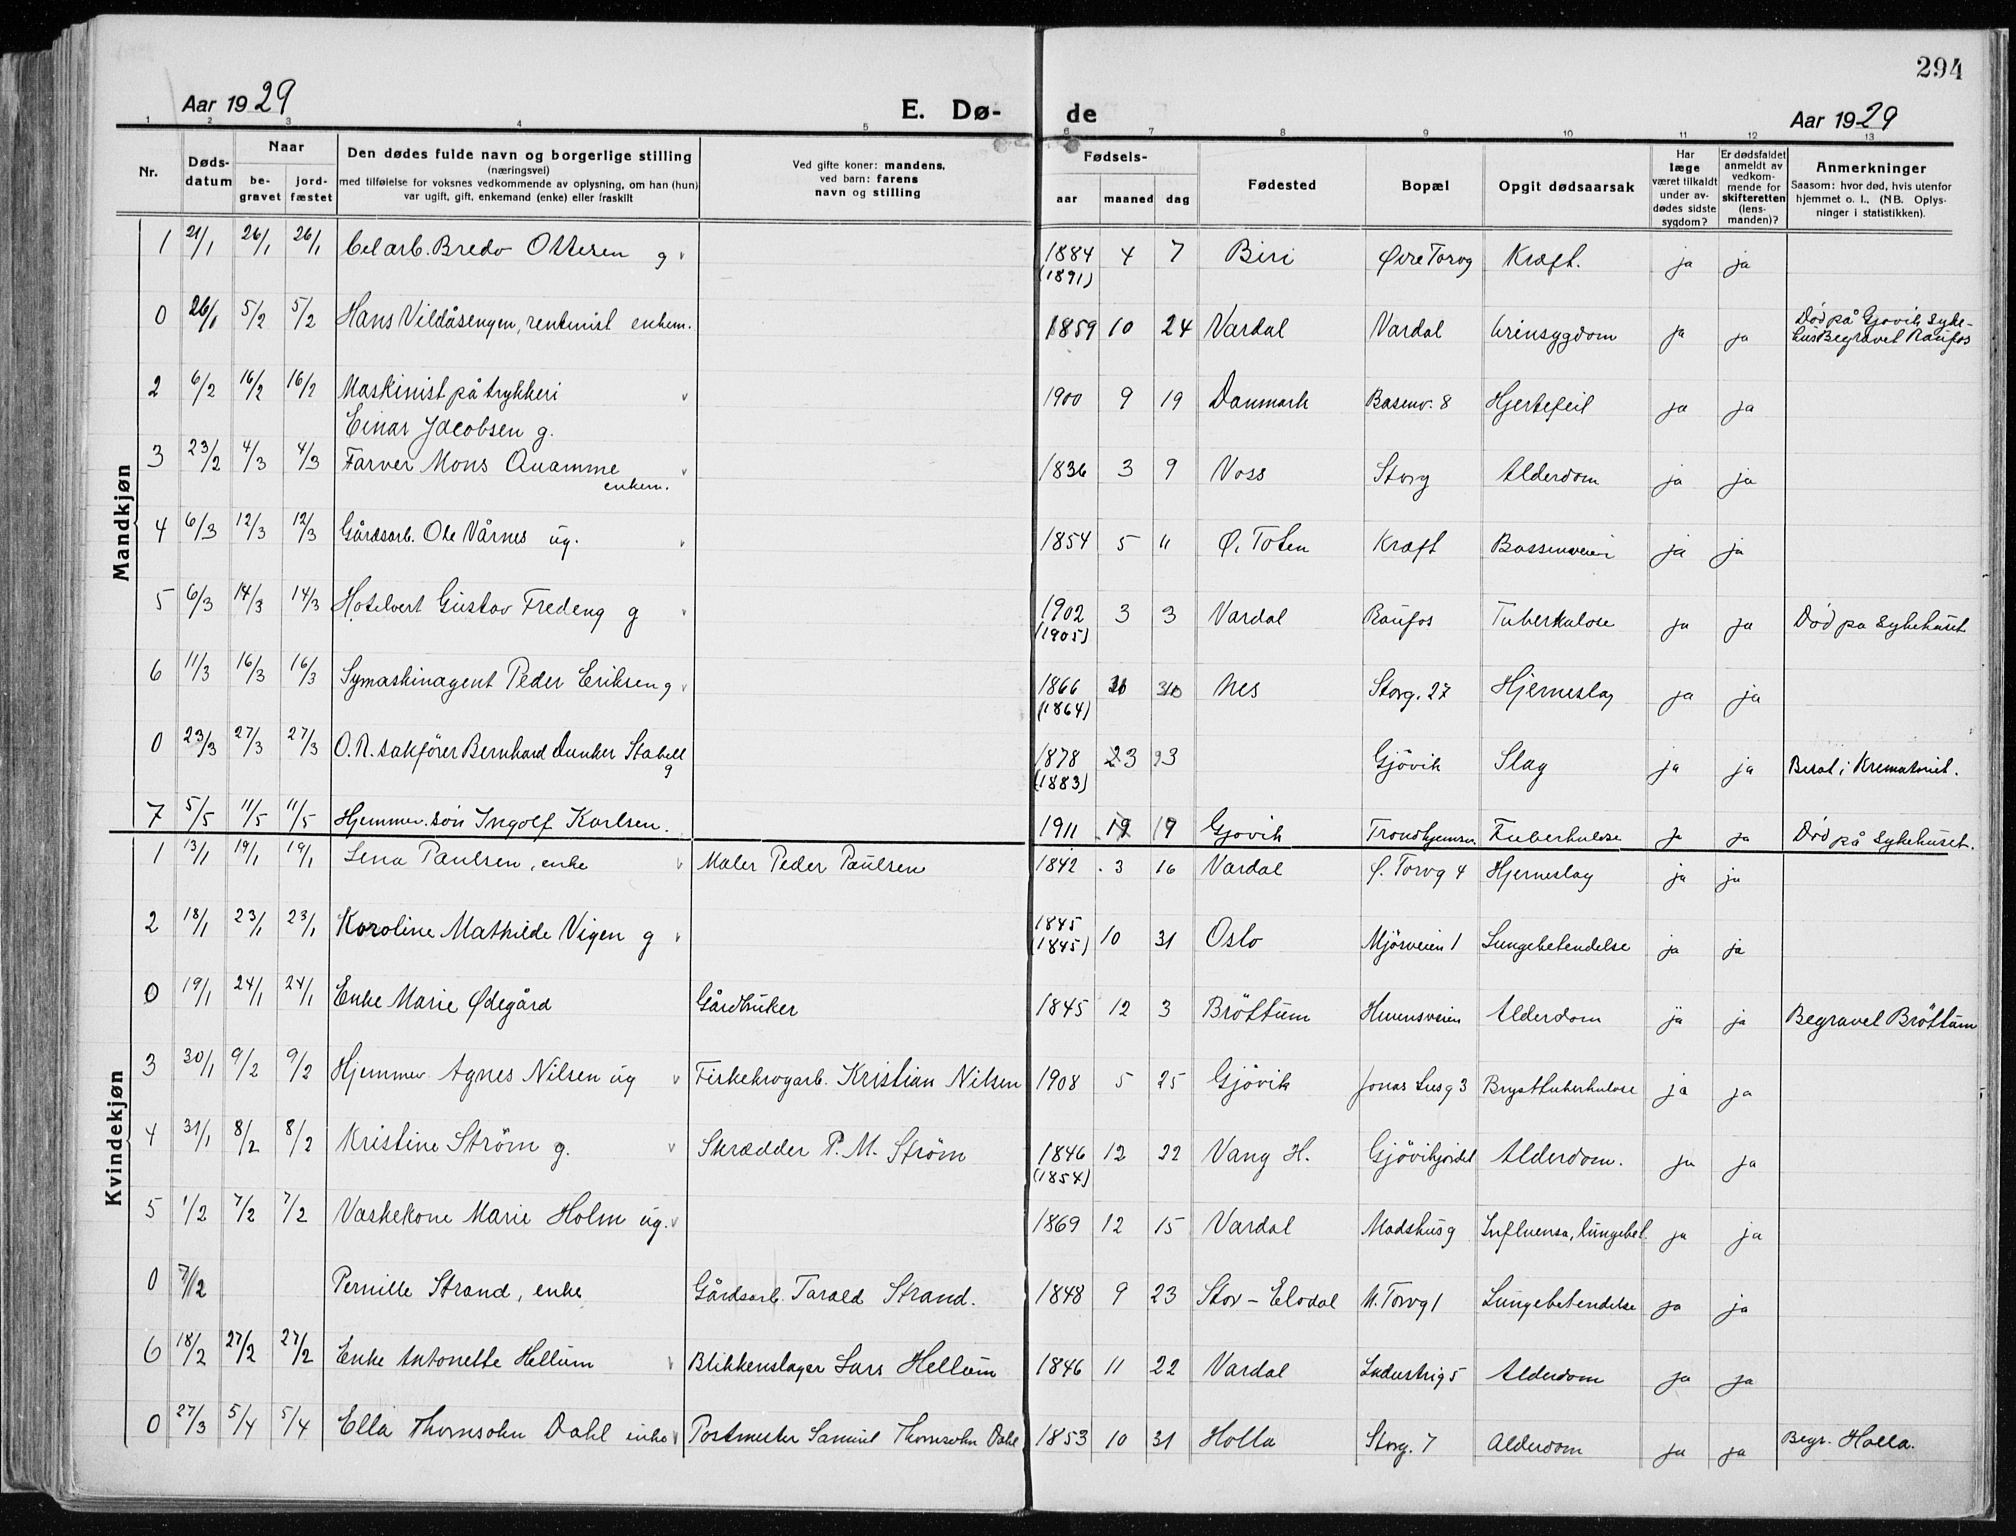 294
Aar 1929 E. Dø- de Aar 1929
1 2 3 4 5 6 7 8 9 10 11 12 13
Nr.
Døds-datum
Naar
be-gravet
jord-fæstet
Den dødes fulde navn og borgerlige stilling
(næringsvei)
med tilføielse for voksnes vedkommende av oplysning, om han (hun)
var ugift, gift, enkemand (enke) eller fraskilt
Ved gifte koner: mandens,
ved barn: farens
navn og stilling
Fødsels-
aar maaned dag
Fødested
Bopæl
Opgit dødsaarsak
Har læge været tilkaldt under av-dødes sidste sygdom?
Er dødsfaldet anmeldt av vedkom-mende for skifteretten (lens-manden)?
Anmerkninger
Saasom: hvor død, hvis utenfor
hjemmet o. l.. (NB. Oplys-
ninger i statistikken).
Mandkjøn
1 21/1 26/1 26/1 Celarb. Bredo Ottesen g 1884 (1891) 4 7 Biri Øvre Torvg Kræft. ja ja
0 26/1 5/2 5/2 Hans Vildåsengen, rentenist enkem. 1859 10 24 Vardal Vardal Urinsygdom ja ja Död på Gjøvik Syke-
hus Begravet Raufos
2 6/2 16/2 16/2 Maskinist på trykkeri
Einar Jacobsen g. 1900 9 19 Danmark Basenv. 8 Hjertefeil ja ja
3 23/2 4/3 4/3 Farver Mons Qvamme
enkem. 1836 3 9 Voss Storg Alderdom ja ja
4 6/3 12/3 12/3 Gårdsarb. Ole Vårnes ug. 1854 5 11 Ø. Toten Kræft Bassenveien ja ja
5 6/3 14/3 14/3 Hotelvert Gustav Fredeng g 1902 (1905) 3 3 Vardal Raufos Tuberkulose ja ja Död pa sykehuset
6 11/3 16/3 16/3 Symaskinagent Peder Eriksen g 1866 (1864) Nes Storg. 27 Hjerneslag ja ja
0 23/3 27/3 27/3 O.R. sakförer Bernhard Dunker Stabell
g 1878 (1883) Gjövik Slag ja ja Berat i Krematoriet.
7 5/5 11/5 11/5 Hjemmev. sön Ingolf Karlsen. 1911 19 Gjovik Trondhjemsv. Tuberkulose ja ja Död på sykehuset.
Kvindekjøn
1 13/1 19/1 19/1 Lena Paulsen, enke Maler Peder Paulsen 1842 3 16 Vardal Ø. Torvg 4 Hjerneslag ja ja
2 18/1 23/1 23/1 Karoline Mathilde Vigen g 1845 (1845) 10 31 Oslo Mjösveien 1 Lungebetendelse ja ja
0 19/1 24/1 24/1 Enke Marie Ødegård Gårdbruker 1845 12 3 Bröttum Hunnsveien Alderdom ja ja Begravet Bröttum
3 30/1 9/2 9/2 Hjemmev Agnes Nilsen ug Fiskekrogarb. Kristian Nilsen 1908 5 25 Gjövik Jonas Liesg 3 Brysttuberkulose ja ja
4 31/1 8/2 8/2 Kristine Ström g. Skrædder P. M. Ström 1846 (1854) 12 22 Vang H. Gjövikjordet Alderdom. ja ja
5 1/2 7/2 7/2 Vaskekone Marie Holm ug. 1869 12 15 Vardal Madshusg Influensa, lungebet. ja ja
0 7/12 Pernille Strand, enke Gårdsarb. Tarald Strand. 1848 9 23 Stor-Elvdal N. Torvg 1 Lungebetendelse ja ja
6 18/2 27/2 27/2 Enke Antonette Hellum Blikkenslager Lars Hellum 1846 11 22 Vardal Industrig 5 Alderdom ja ja
0 27/3 5/4 5/4 Ella Thomsohn Dahl enke Postmester Samuel Thomsohn Dahl 1853 10 31 Holla Storg. 7 Alderdom ja ja Begr. Holla.